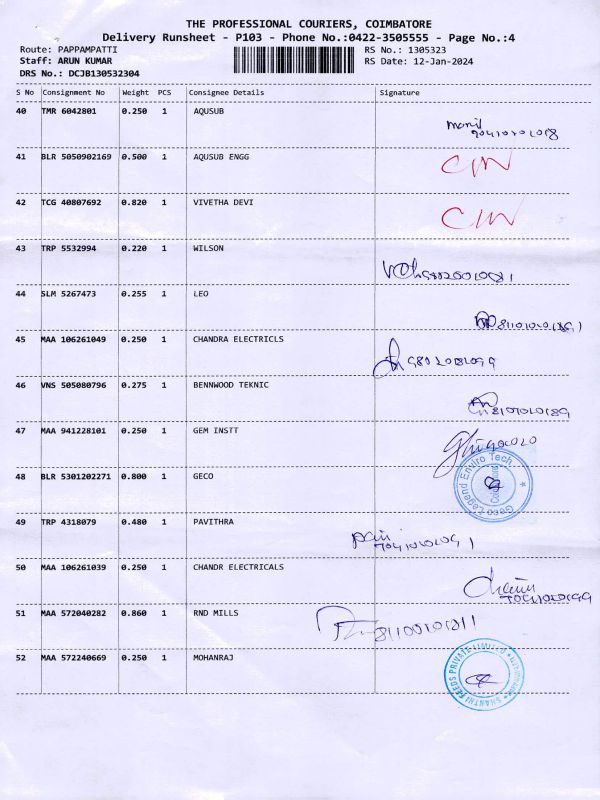 THE PROFESSIONAL COURIERS, COIMBATORE
Delivery Runsheet - P103 - Phone No.:0422-3505555 - Page No.:4
Route: PAPPAMPATTI RS No.: 1305323
Staff: ARUN KUMAR RS Date: 12-Jan-2024
DRS No.: DCJB130532304
S No Consignment No Weight PCS Consignee Details Signature
40 TMR 6042801 0.250 1 AQUSUB
41 BLR 5050902169 0.500 1 AQUSUB ENGG
42 TCG 40807692 0.820 1 VIVETHA DEVI
43 TRP 5532994 0.220 1 WILSON
44 SLM 5267473 0.255 1 LEO
45 MAA 106261049 0.250 1 CHANDRA ELECTRICLS
46 VNS 505080796 0.275 1 BENNWOOD TEKNIC
47 MAA 941228101 0.250 1 GEM INSTT
48 BLR 5301202271 0.800 1 GECO
Geco Legend Enviro Tech
49 TRP 4318079 0.480 1 PAVITHRA
50 MAA 106261039 0.250 1 CHANDR ELECTRICALS
51 MAA 572040282 0.860 1 RND MILLS
52 MAA 572240669 0.250 1 MOHANRAJ
SHANTHI FEEDS PRIVATE LIMITED